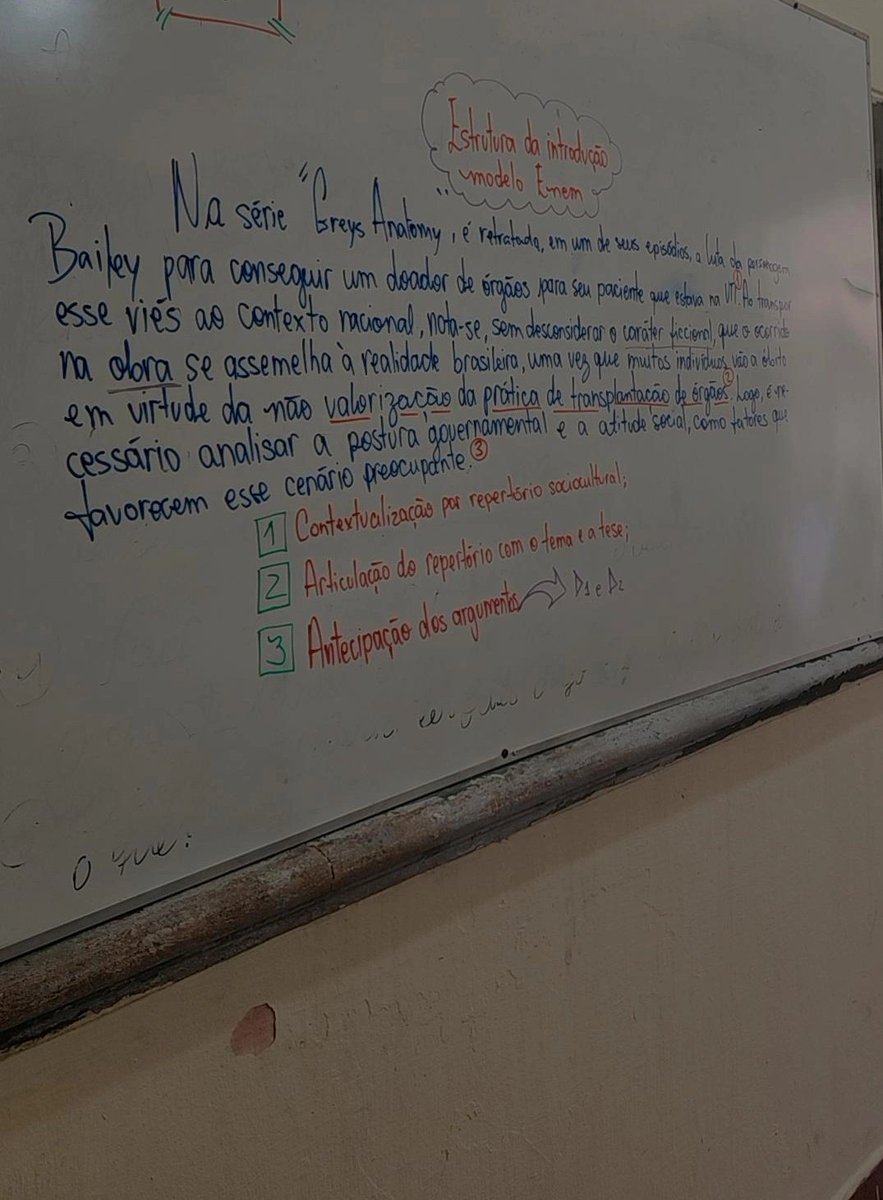 Estrutura da introdução
modelo Enem
Na série "Greys Anatomy", é retratada, em um de seus episódios, a luta da personagem
Bailey para conseguir um doador de órgãos para seu paciente que estava na UTI.① Ao transpor
esse viés ao contexto nacional, nota-se, sem desconsiderar o caráter ficcional, que o ocorrido
na obra se assemelha à realidade brasileira, uma vez que muitos indivíduos vão a óbito
em virtude da não valorização da prática de transplantação de órgãos.② Logo, é ne-
cessário analisar a postura governamental e a atitude social, como fatores que
favorecem esse cenário preocupante.③
1 Contextualização por repertório sociocultural;
2 Articulação do repertório com o tema e a tese;
3 Antecipação dos argumentos D1 e D2
O que: